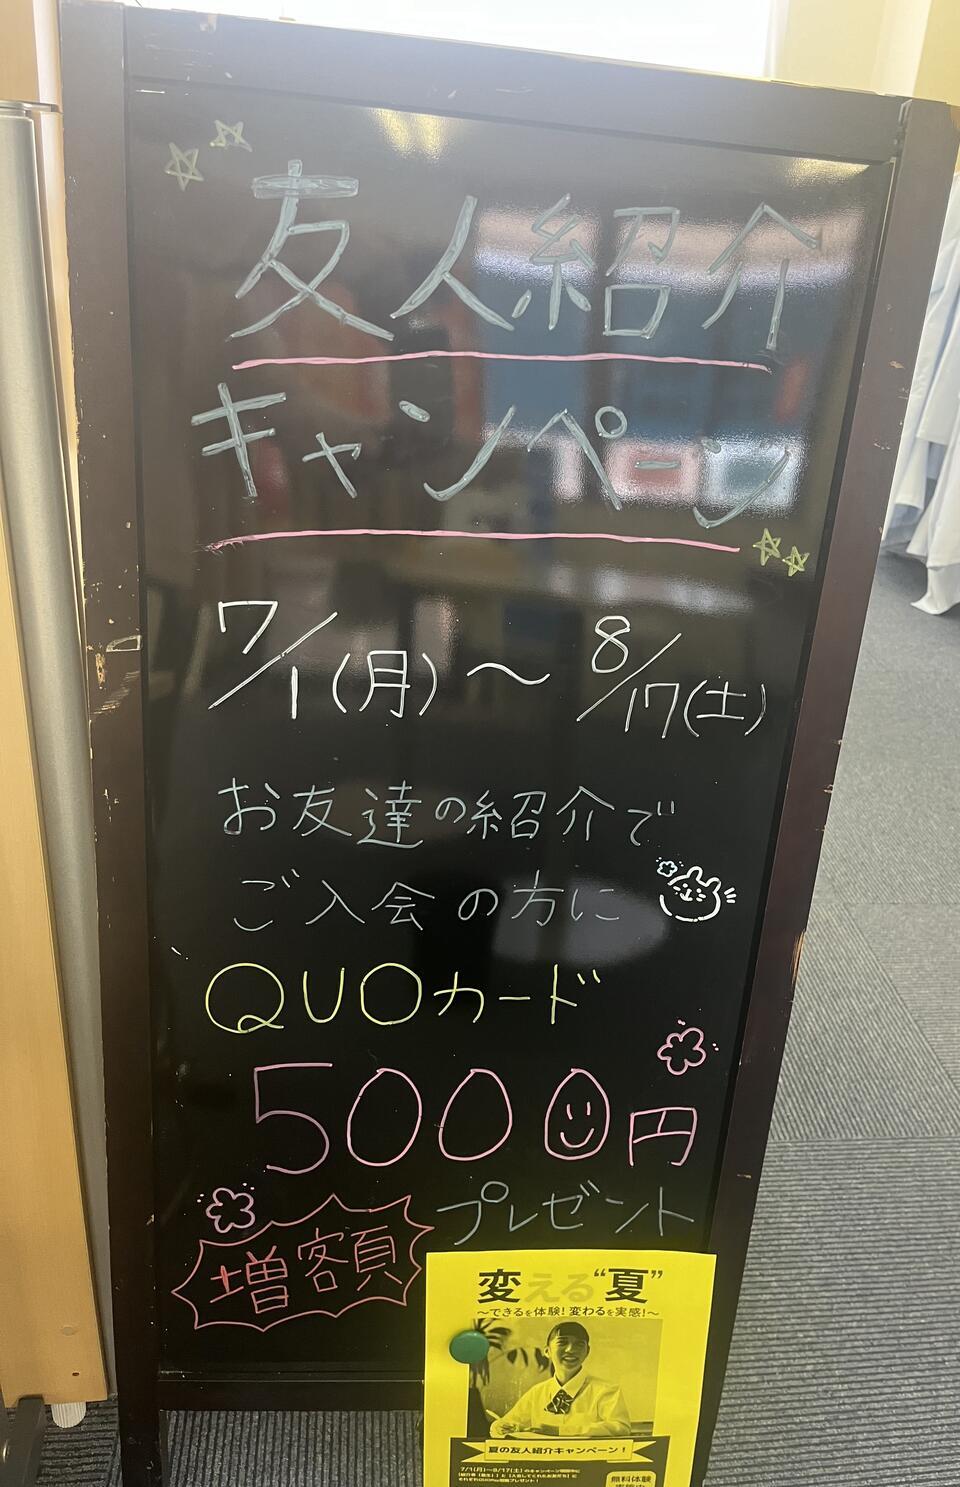 友人紹介
キャンペーン
7/1(月)〜8/17(土)
お友達の紹介で
ご入会の方に
QUOカード
5000円
プレゼント
増額
変える“夏”
～できるを体験！変わるを実感！～
夏の友人紹介キャンペーン！
7/1(月)～8/17(土)のキャンペーン期間中に
無料体験